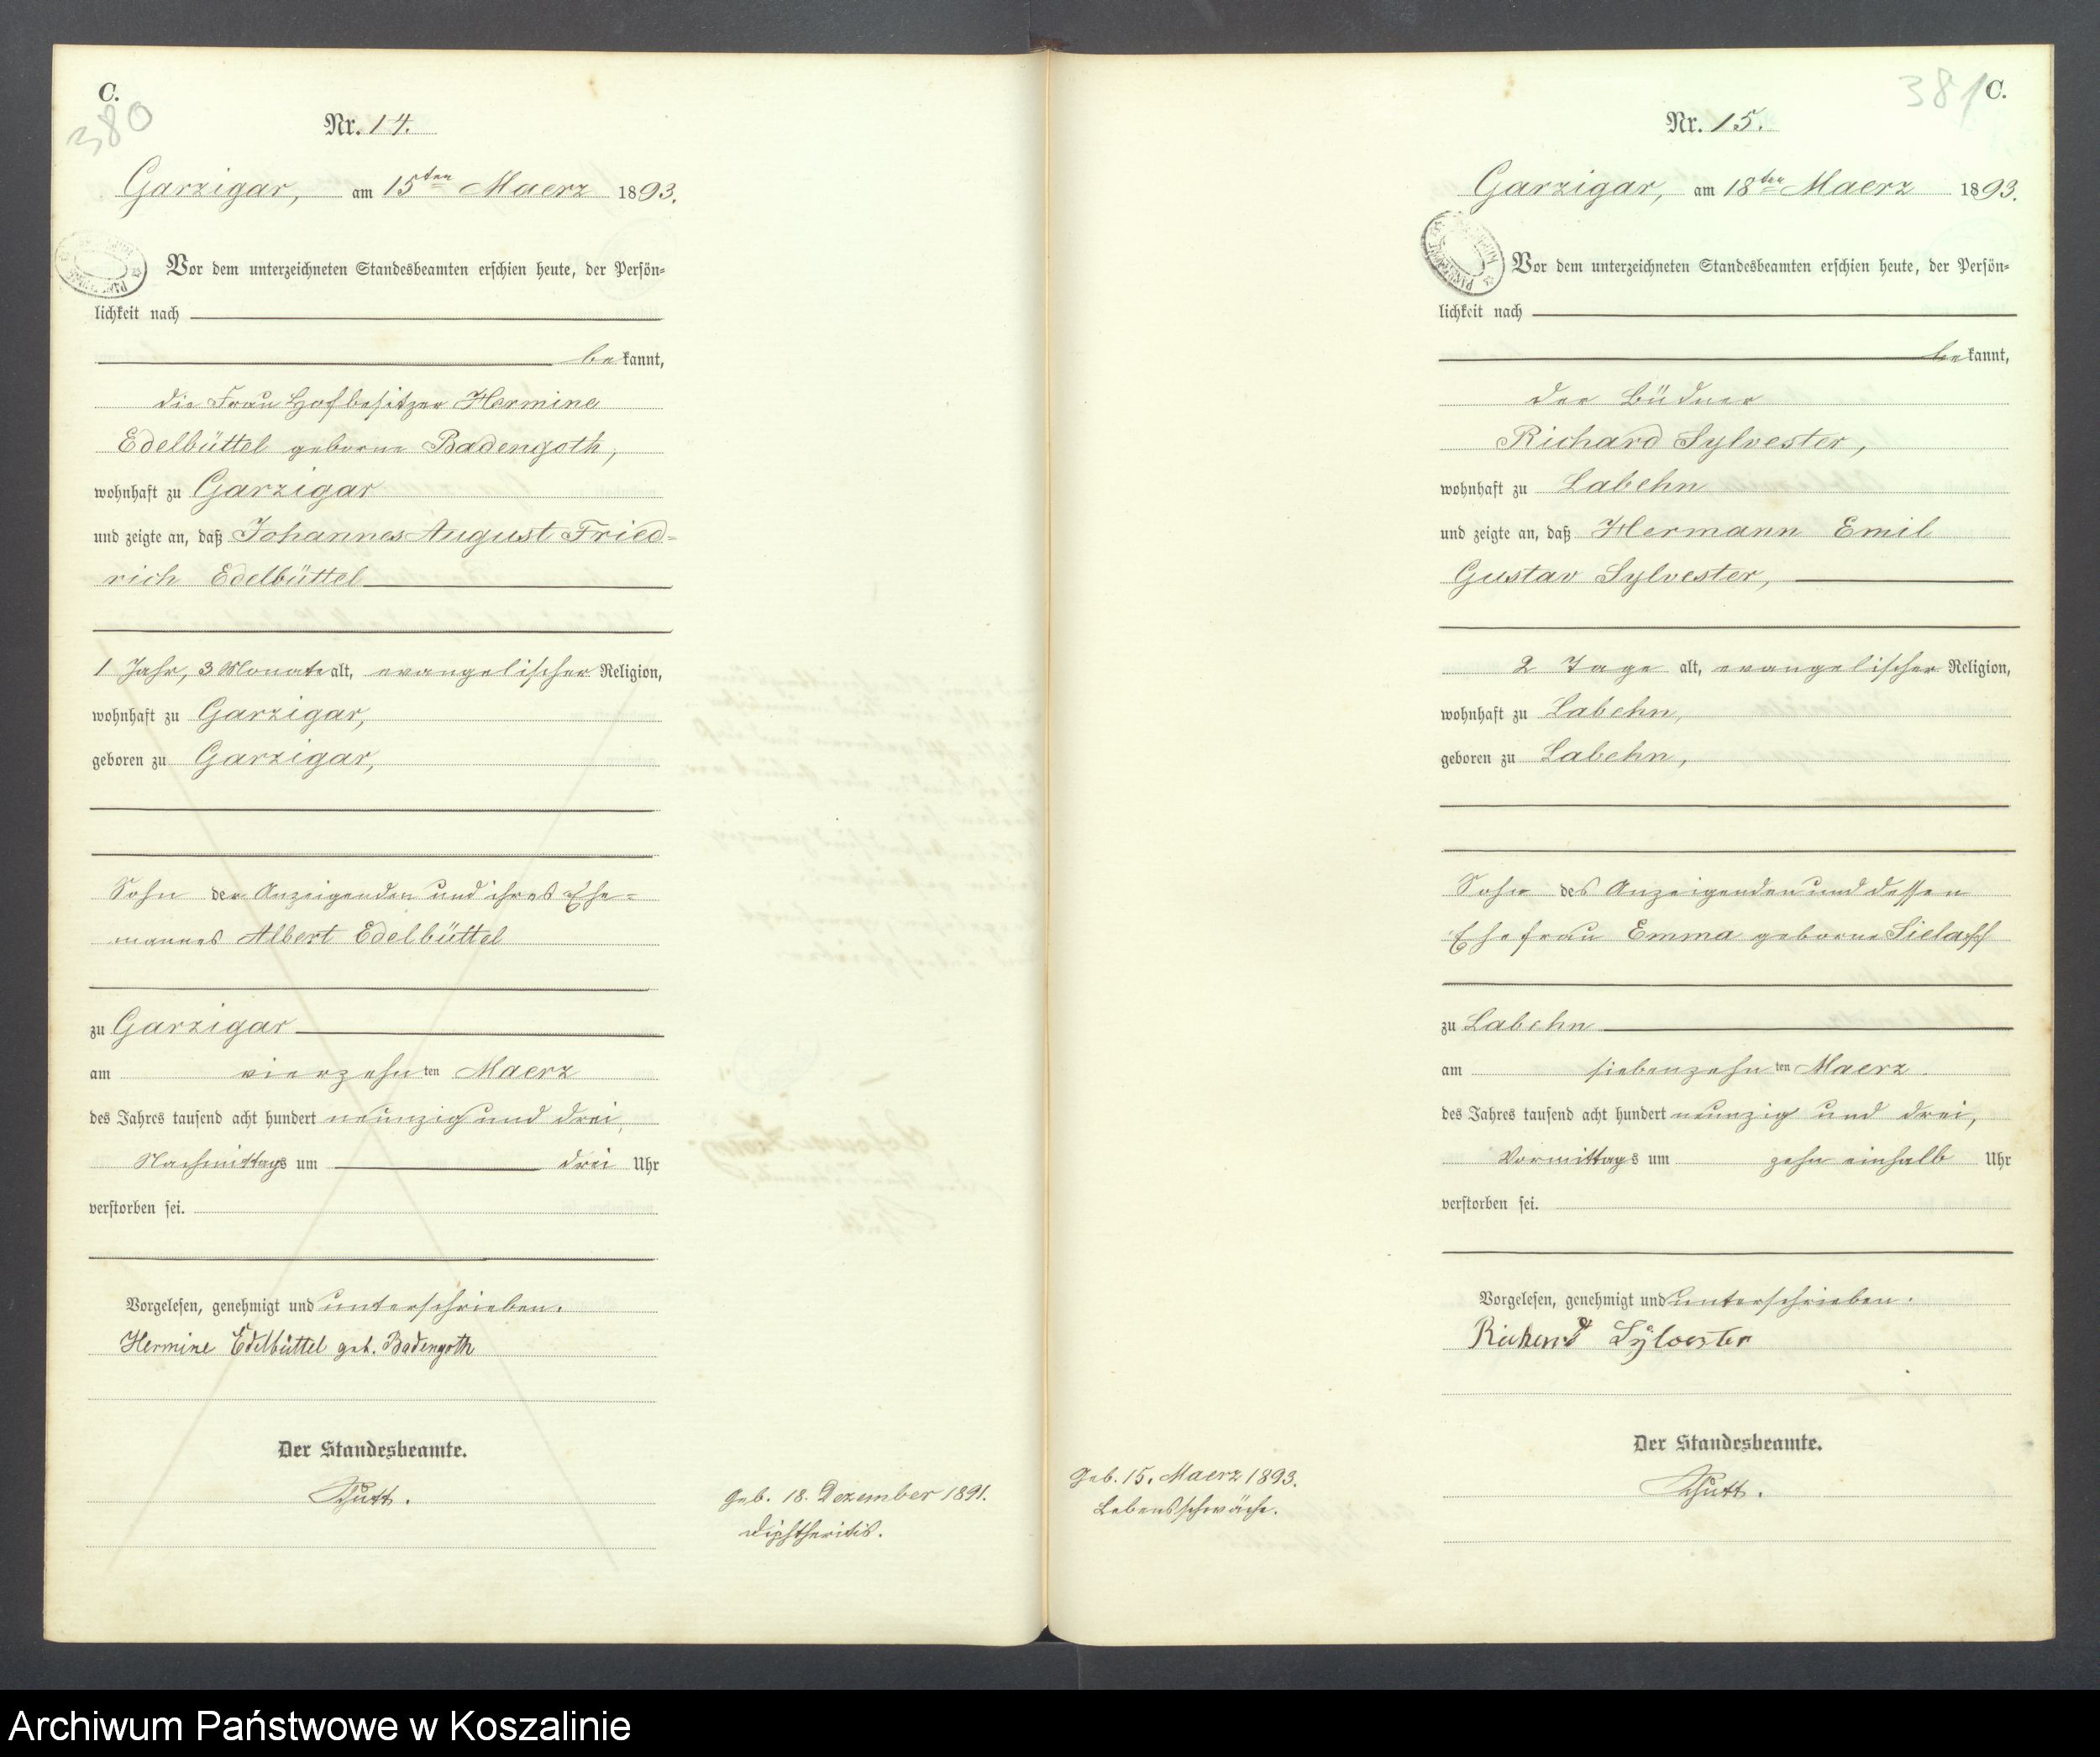 C.
380
Nr. 14.
Garzigar, am 15ten Maerz 1893.
Vor dem unterzeichneten Standesbeamten erschien heute, der Persön-
lichkeit nach
bekannt,
die Frau Hofbesitzer Hermine
Edelbüttel geborne Badengoth,
wohnhaft zu Garzigar
und zeigte an, daß Johannes August Fried-
rich Edelbüttel
1 Jahr, 3 Monate alt, evangelischer Religion,
wohnhaft zu Garzigar,
geboren zu Garzigar,
Sohn der Anzeigenden und ihres Ehe-
mannes Albert Edelbüttel
zu Garzigar
am vierzehnten Maerz
des Jahres tausend acht hundert neunzig und drei,
Nachmittags um drei Uhr
verstorben sei.
Vorgelesen, genehmigt und unterschrieben.
Hermine Edelbüttel geb. Badengoth
Der Standesbeamte.
Schütt.
Geb. 18. Dezember 1891.
Diphtheritis.
381
C.
Nr. 15.
Garzigar, am 18ten Maerz 1893.
Vor dem unterzeichneten Standesbeamten erschien heute, der Persön-
lichkeit nach
bekannt,
der Büdner
Richard Sylvester,
wohnhaft zu Labehn
und zeigte an, daß Hermann Emil
Gustav Sylvester,
2 Tage alt, evangelischer Religion,
wohnhaft zu Labehn,
geboren zu Labehn,
Sohn des Anzeigenden und dessen
Ehefrau Emma geborne Sielaff
zu Labehn
am siebenzehnten Maerz.
des Jahres tausend acht hundert neunzig und drei,
Vormittags um zehn einhalb Uhr
verstorben sei.
Vorgelesen, genehmigt und unterschrieben.
Richard Sylvester
Der Standesbeamte.
Schütt.
Geb. 15. Maerz 1893.
Lebensschwäche.
Archiwum Państwowe w Koszalinie